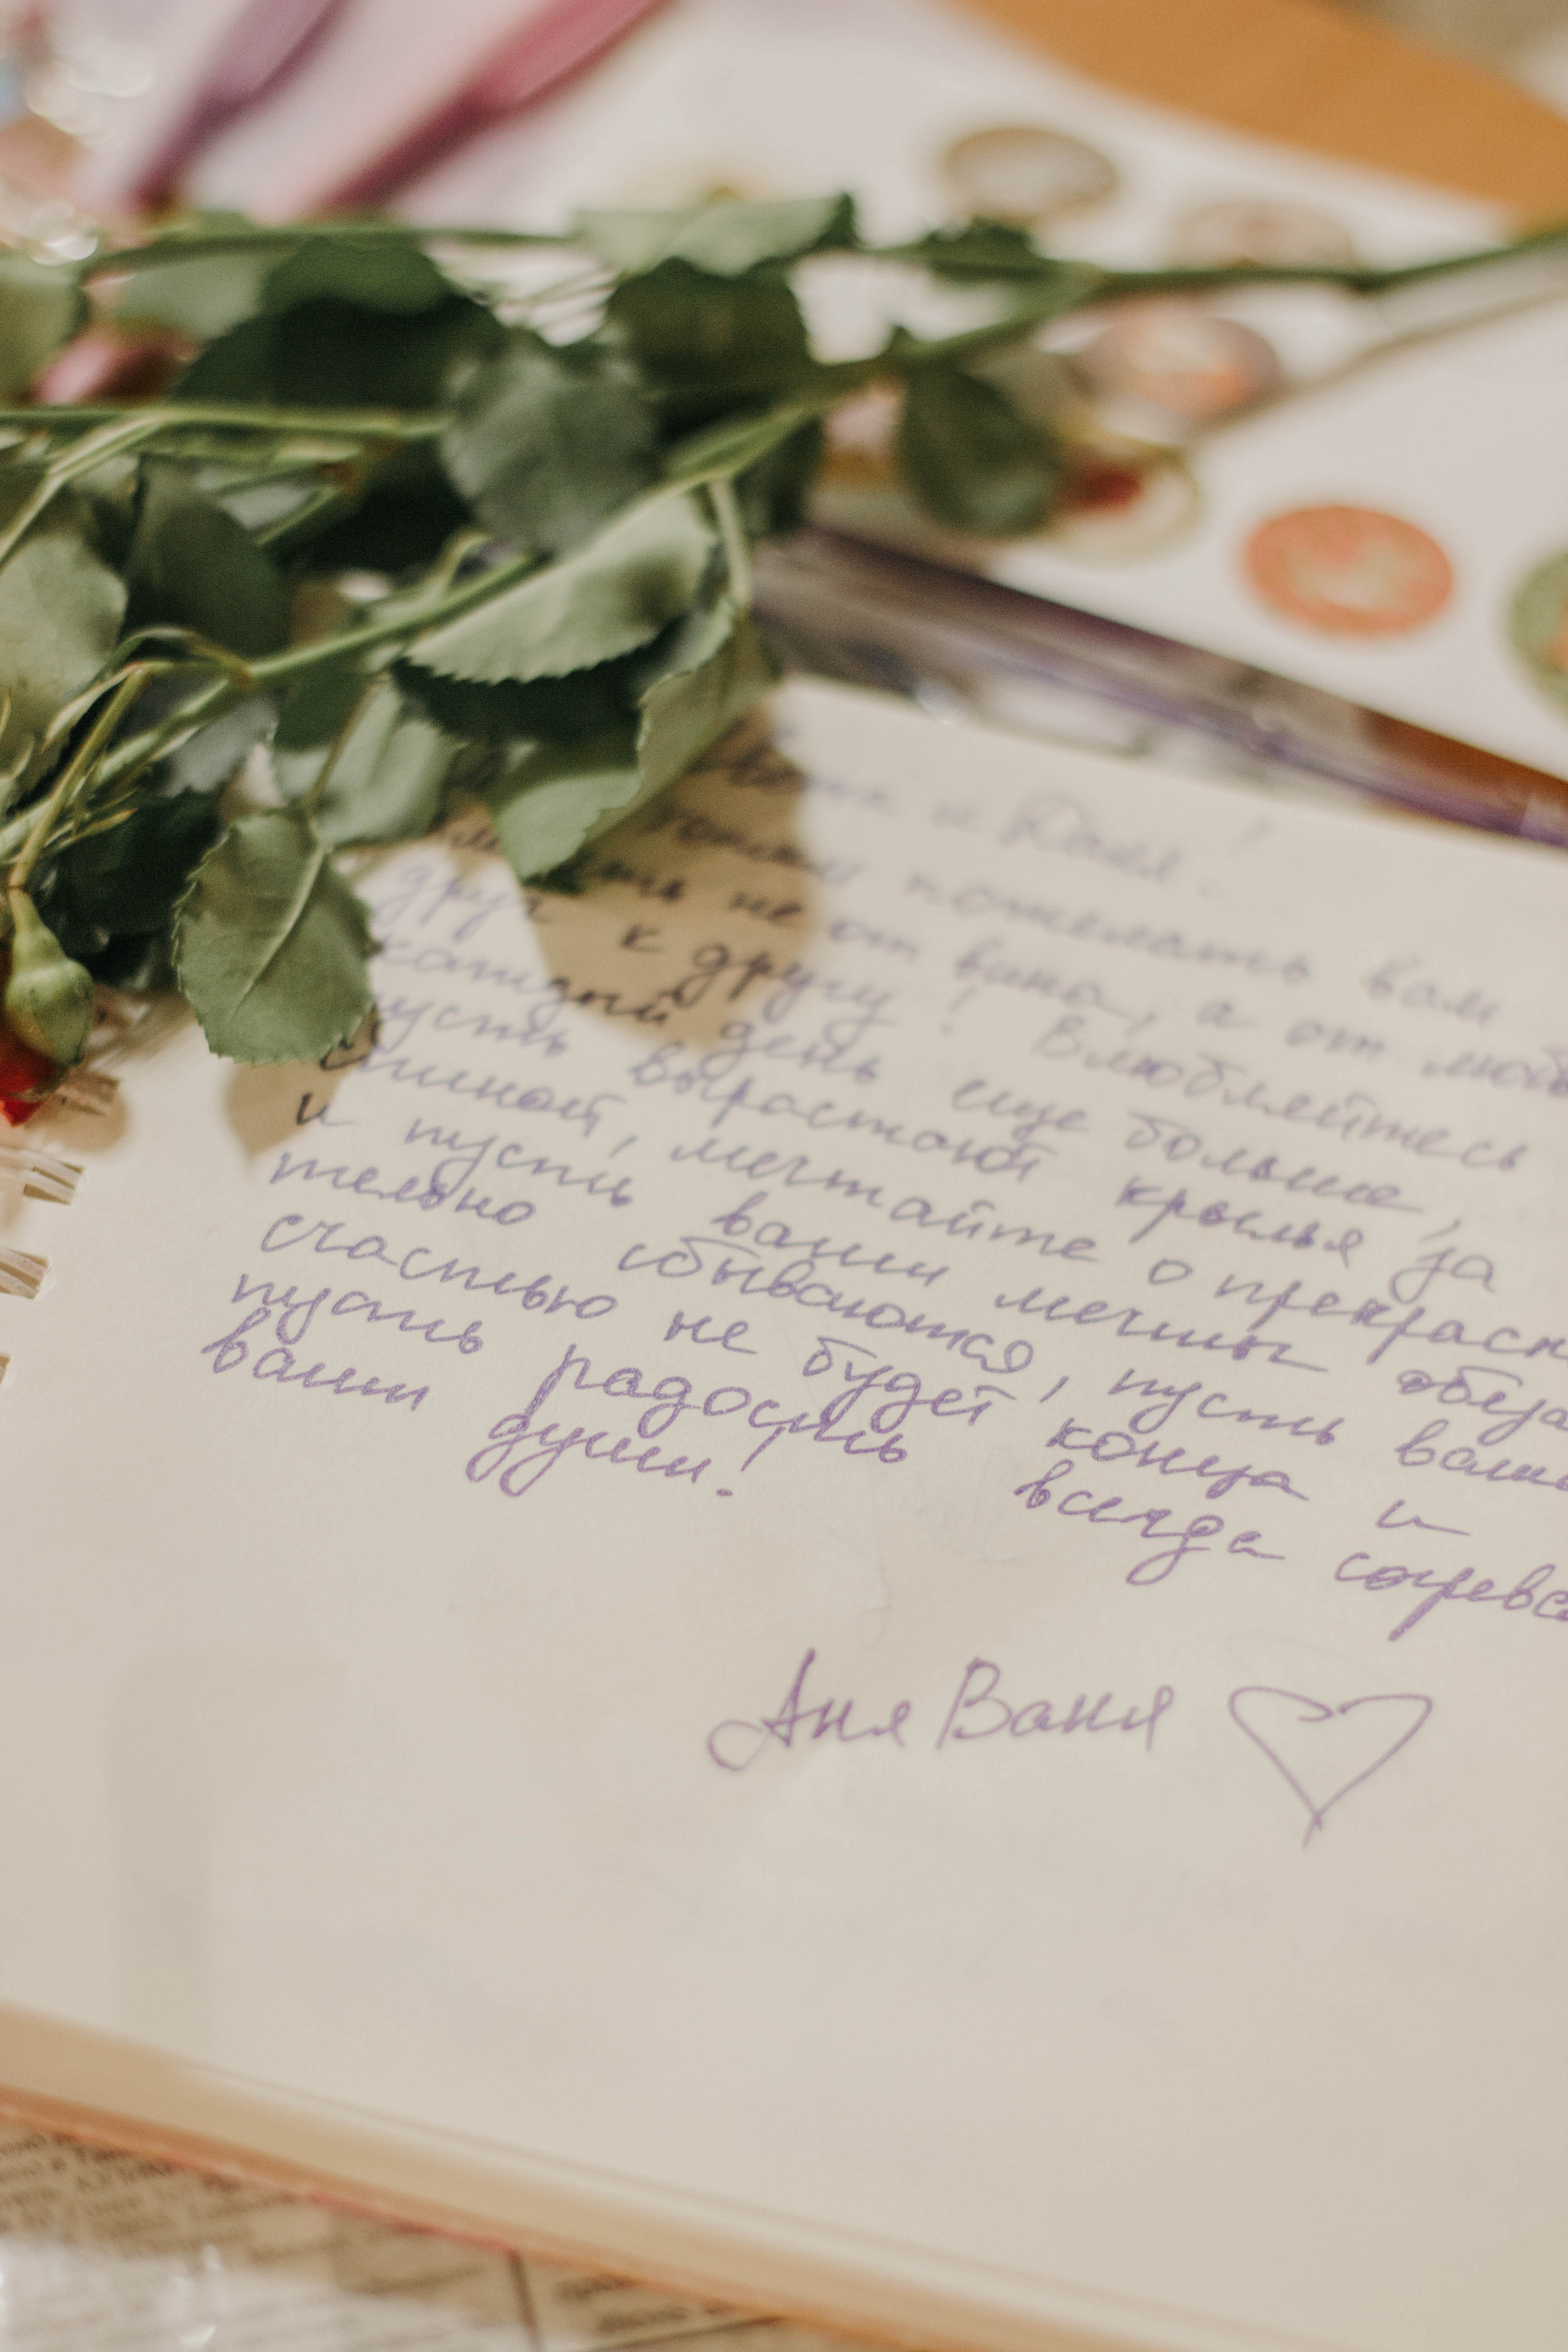 и Даня!
пожелать вам
не от вина, а от любв
друг к другу! Влюбляйтесь
каждый день еще больше,
пусть вырастают крылья за
спиной, мечтайте о прекрасн
и пусть ваши мечты обяза
тельно сбываются, пусть ваше
счастью не будет конца и
пусть радость всегда согрева
ваши души!
Аня Ваня